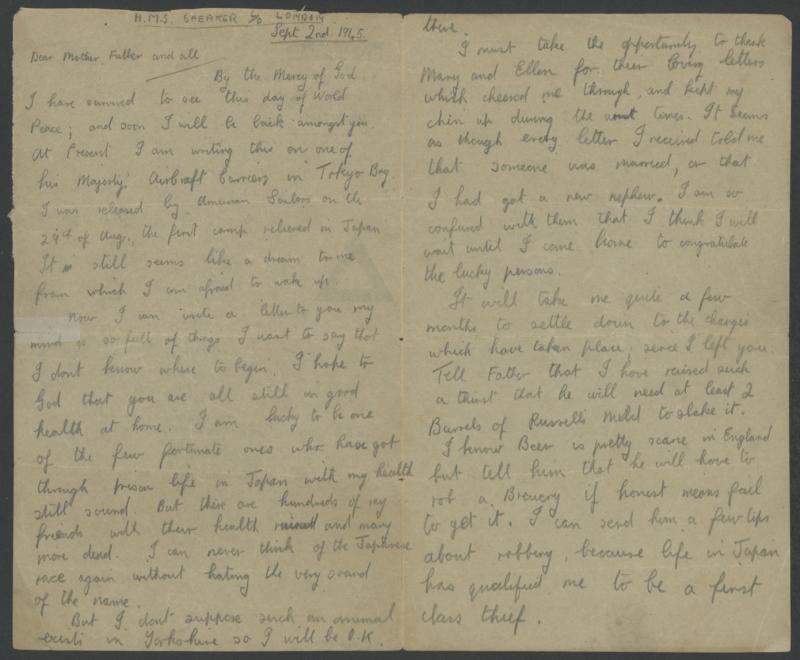 H.M.S. SPEAKER C/O LONDON
Sept 2nd 1945.
Dear Mother, Father and all
By the Mercy of God
I have survived to see this day of World
Peace; and soon I will be back amongst you
At Present I am writing this on one of
his Majesty's Aircraft Carriers in Tokyo Bay
I was released by American Sailors on the
29th of Aug., the first camp released in Japan
It is still seems like a dream to me
from which I am afraid to wake up.
Now I can write a letter to you my
mind is so full of things I want to say that
I dont know where to begin. I hope to
God that you are all still in good
health at home. I am lucky to be one
of the few fortunate ones who have got
through prison life in Japan with my health
still sound. But there are hundreds of my
friends with their health ruined and many
more dead. I can never think of the Japanese
race again without hating the very sound
of the name.
But I dont suppose such an animal
exists in Yorkshire so I will be O.K.
there.
I must take the opportunity to thank
Mary and Ellen for their loving letters
which cheered me through, and kept my
chin up during the worst times. It seems
as though every letter I received told me
that someone was married, or that
I had got a new nephew. I am so
confused with them that I think I will
wait until I come home to congratulate
the lucky persons.
It will take me quite a few
months to settle down to the changes
which have taken place, since I left you.
Tell Father that I have raised such
a thirst that he will need at least 2
Barrels of Russells Mild to slake it.
I know Beer is pretty scarce in England
but tell him that he will have to
rob a Brewery if honest means fail
to get it. I can send him a few tips
about robbery, because life in Japan
has qualified me to be a first
class thief.